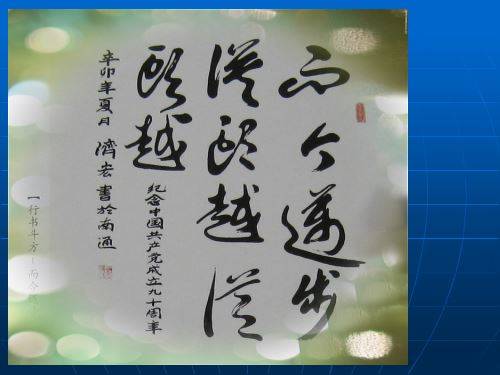 而今邁步
從頭越從
頭越
紀念中国共产党成立九十周年
辛卯年夏月 濟宏書於南通
【行书斗方